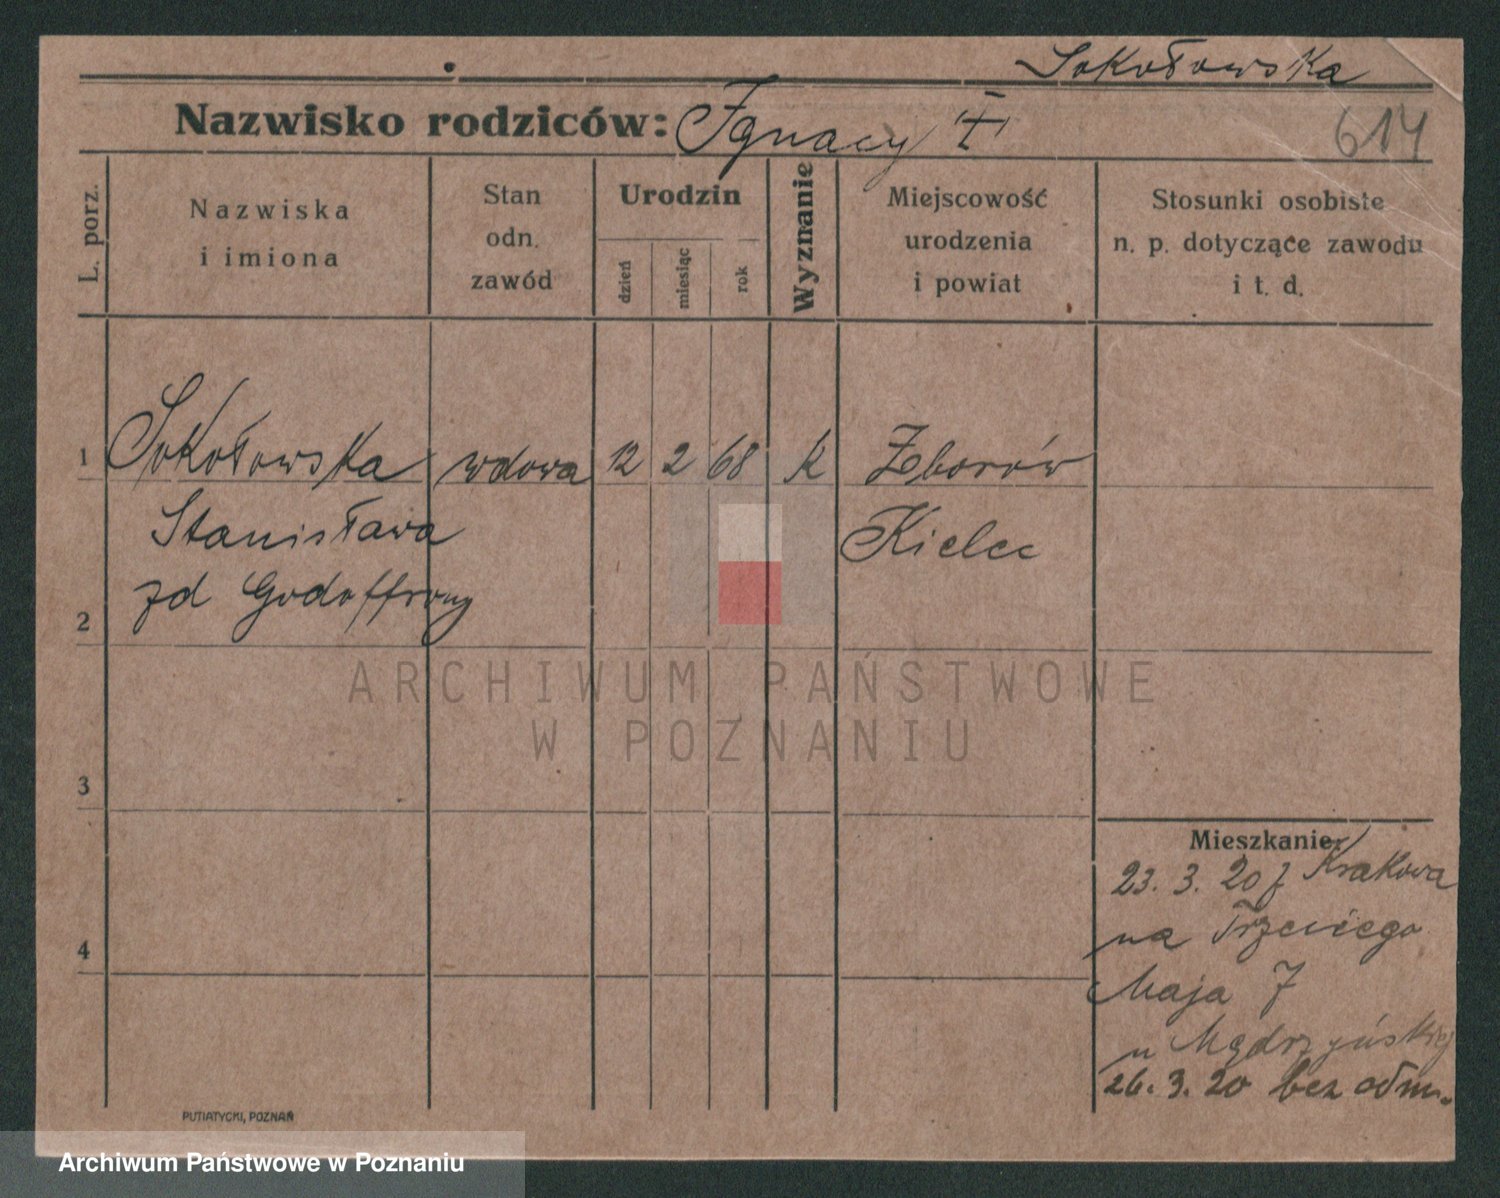 Sokołowska
Nazwisko rodziców: Ignacy
614
L. porz.
Nazwiska
i imiona
Stan
odn.
zawód
Urodzin
dzień
miesiąc
rok
Wyznanie
Miejscowość
urodzenia
i powiat
Stosunki osobiste
n. p. dotyczące zawodu
i t. d.
1 Sokołowska wdowa 12 2 68 k Zborów
Stanisława Kielce
zd
2
ARCHIWUM PAŃSTWOWE
W POZNANIU
3
Mieszkanie:
23. 3. 20 z Krakowa
na Trzeciego
4
Maja 7
u Mądrzyńskiej
26. 3. 20 bez odm.
PUTIATYCKI, POZNAŃ
Archiwum Państwowe w Poznaniu